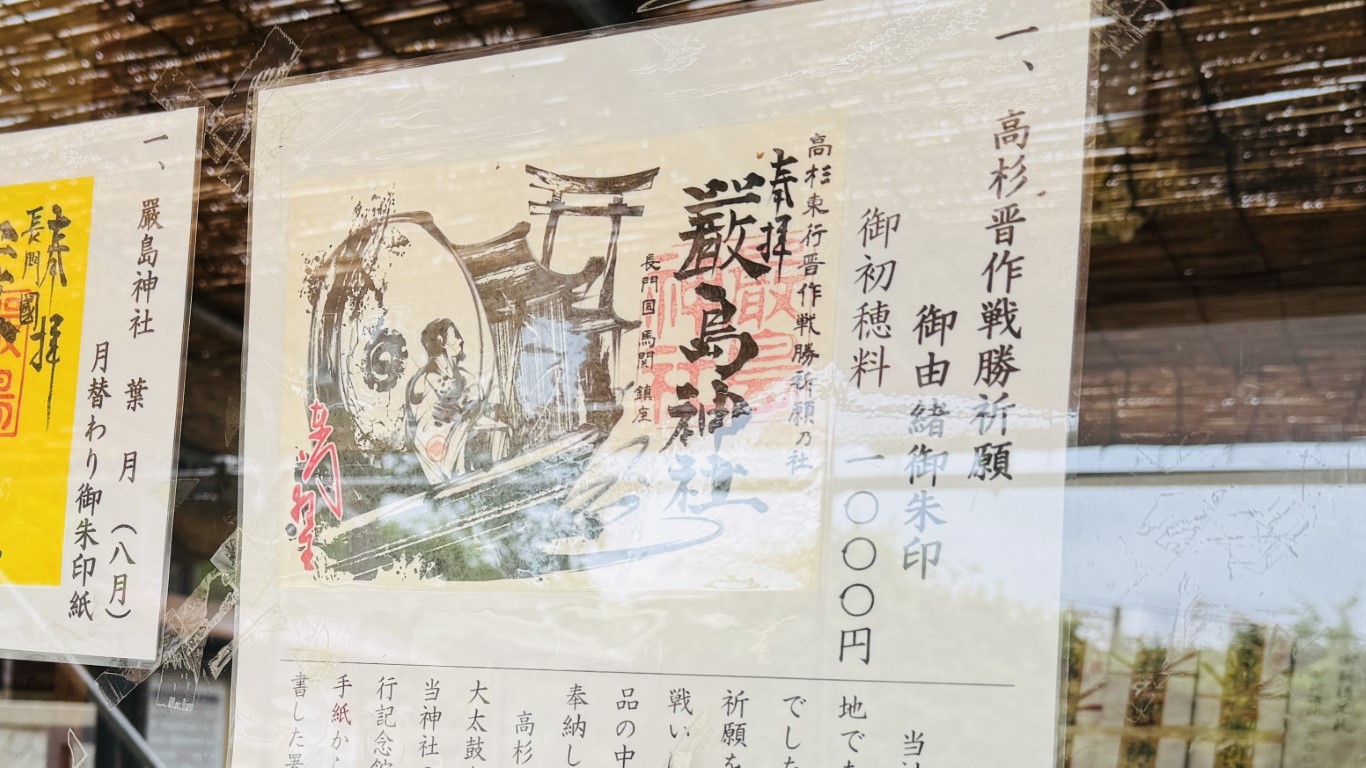 一、高杉晋作戦勝祈願
御由緒御朱印
御初穂料 一〇〇〇円
高杉東行晋作戦勝祈願乃社
奉拝
厳島神社
長門国馬関鎮座
当
地でも
でした
祈願を
戦い
品の中
奉納し
高杉
大太鼓
当神社
行記念館
手紙か
書した署
一、嚴島神社 葉月(八月)
月替わり御朱印紙
奉拝
長門國